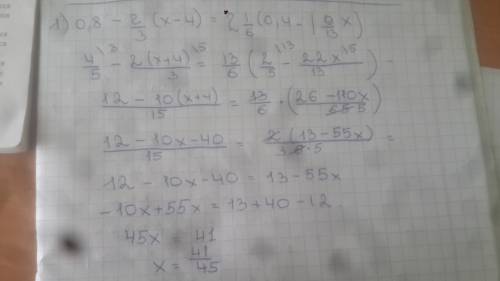 1) 0,8 - 2/3 (x-4) = 2 1/6 (0,4 - 1 9/13 x)
4/5 - 2(x+4)/3 = 13/6 (2/5 - 22x/13)
12 - 10(x+4)/15 = 13/6 · (26 - 110x/65)
12 - 10x - 40/15 = 2(13 - 55x)/3·5 =
12 - 10x - 40 = 13 - 55x
-10x + 55x = 13 + 40 - 12
45x = 41
x = 41/45